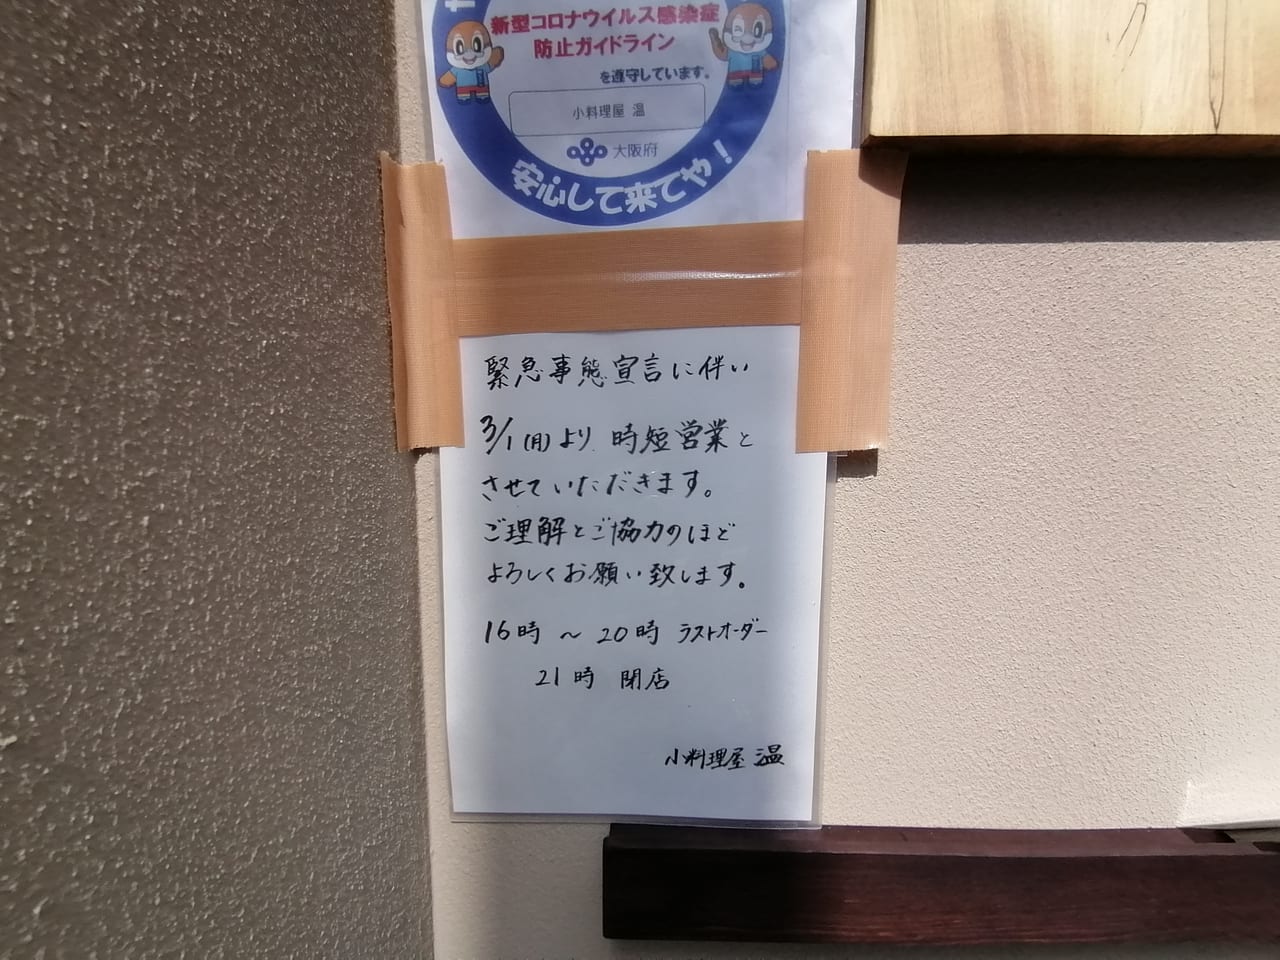 新型コロナウイルス感染症
防止ガイドライン
を遵守しています。
小料理屋 温
大阪府
安心して来てや!
緊急事態宣言に伴い
3/1(月)より 時短営業と
させていただきます。
ご理解とご協力のほど
よろしくお願い致します。
16時 ～ 20時 ラストオーダー
21時 閉店
小料理屋 温